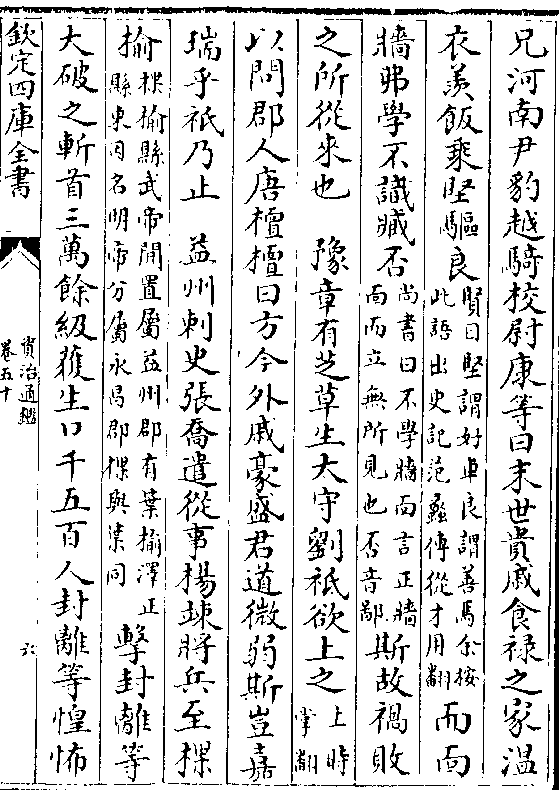 兄河南尹豹越騎校尉康等曰末世貴戚食禄之家溫
衣羙飯乘堅驅良
賢曰堅謂好車良謂善馬余按
此語出史記范蠡傳從才用翻
而面
牆弗學不識臧否
尚書曰不學牆面言正牆
面而立無所見也否音鄙
斯故禍敗
之所從來也　豫章有芝草生大守劉祇欲上之
上時
掌翻
以問郡人唐檀檀曰方今外戚豪盛君道微弱斯豈嘉
瑞乎祇乃止　益州刺史張喬遣從事楊竦將兵至楪
榆
楪榆縣武帝開置屬益州郡有葉榆澤正
縣東因名明帝分屬永昌郡楪與葉同
擊封離等
大破之斬首三萬餘級獲生口千五百人封離等惶怖
欽定四庫全書
資治通鑑
卷五十
六